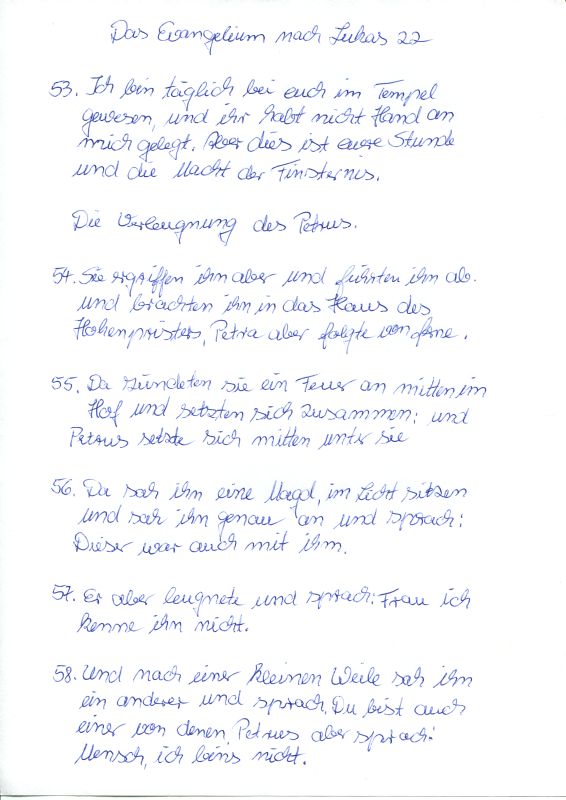 Das Evangelium nach Lukas 22
53. Ich bin täglich bei euch im Tempel
gewesen, und ihr habt nicht Hand an
mich gelegt. Aber dies ist eure Stunde
und die Macht der Finisternis.
Die Verleugnung des Petrus.
54. Sie ergriffen ihn aber und führten ihn ab.
und brachten ihn in das Haus des
Hohenpristers, Petra aber folgte von ferne.
55. Da zündeten sie ein Feuer an mitten im
Hof und setzten sich zusammen; und
Petrus setzte sich mitten unter sie
56. Da sah ihn eine Magd, im Licht sitzen
und sah ihn genau an und sprach:
Dieser war auch mit ihm.
57. Er aber leugnete und sprach: Frau ich
kenne ihn nicht.
58. Und nach einer kleinen Weile sah ihn
ein anderer und sprach, Du bist auch
einer von denen, Petrus aber sprach:
Mensch, ich bins nicht.